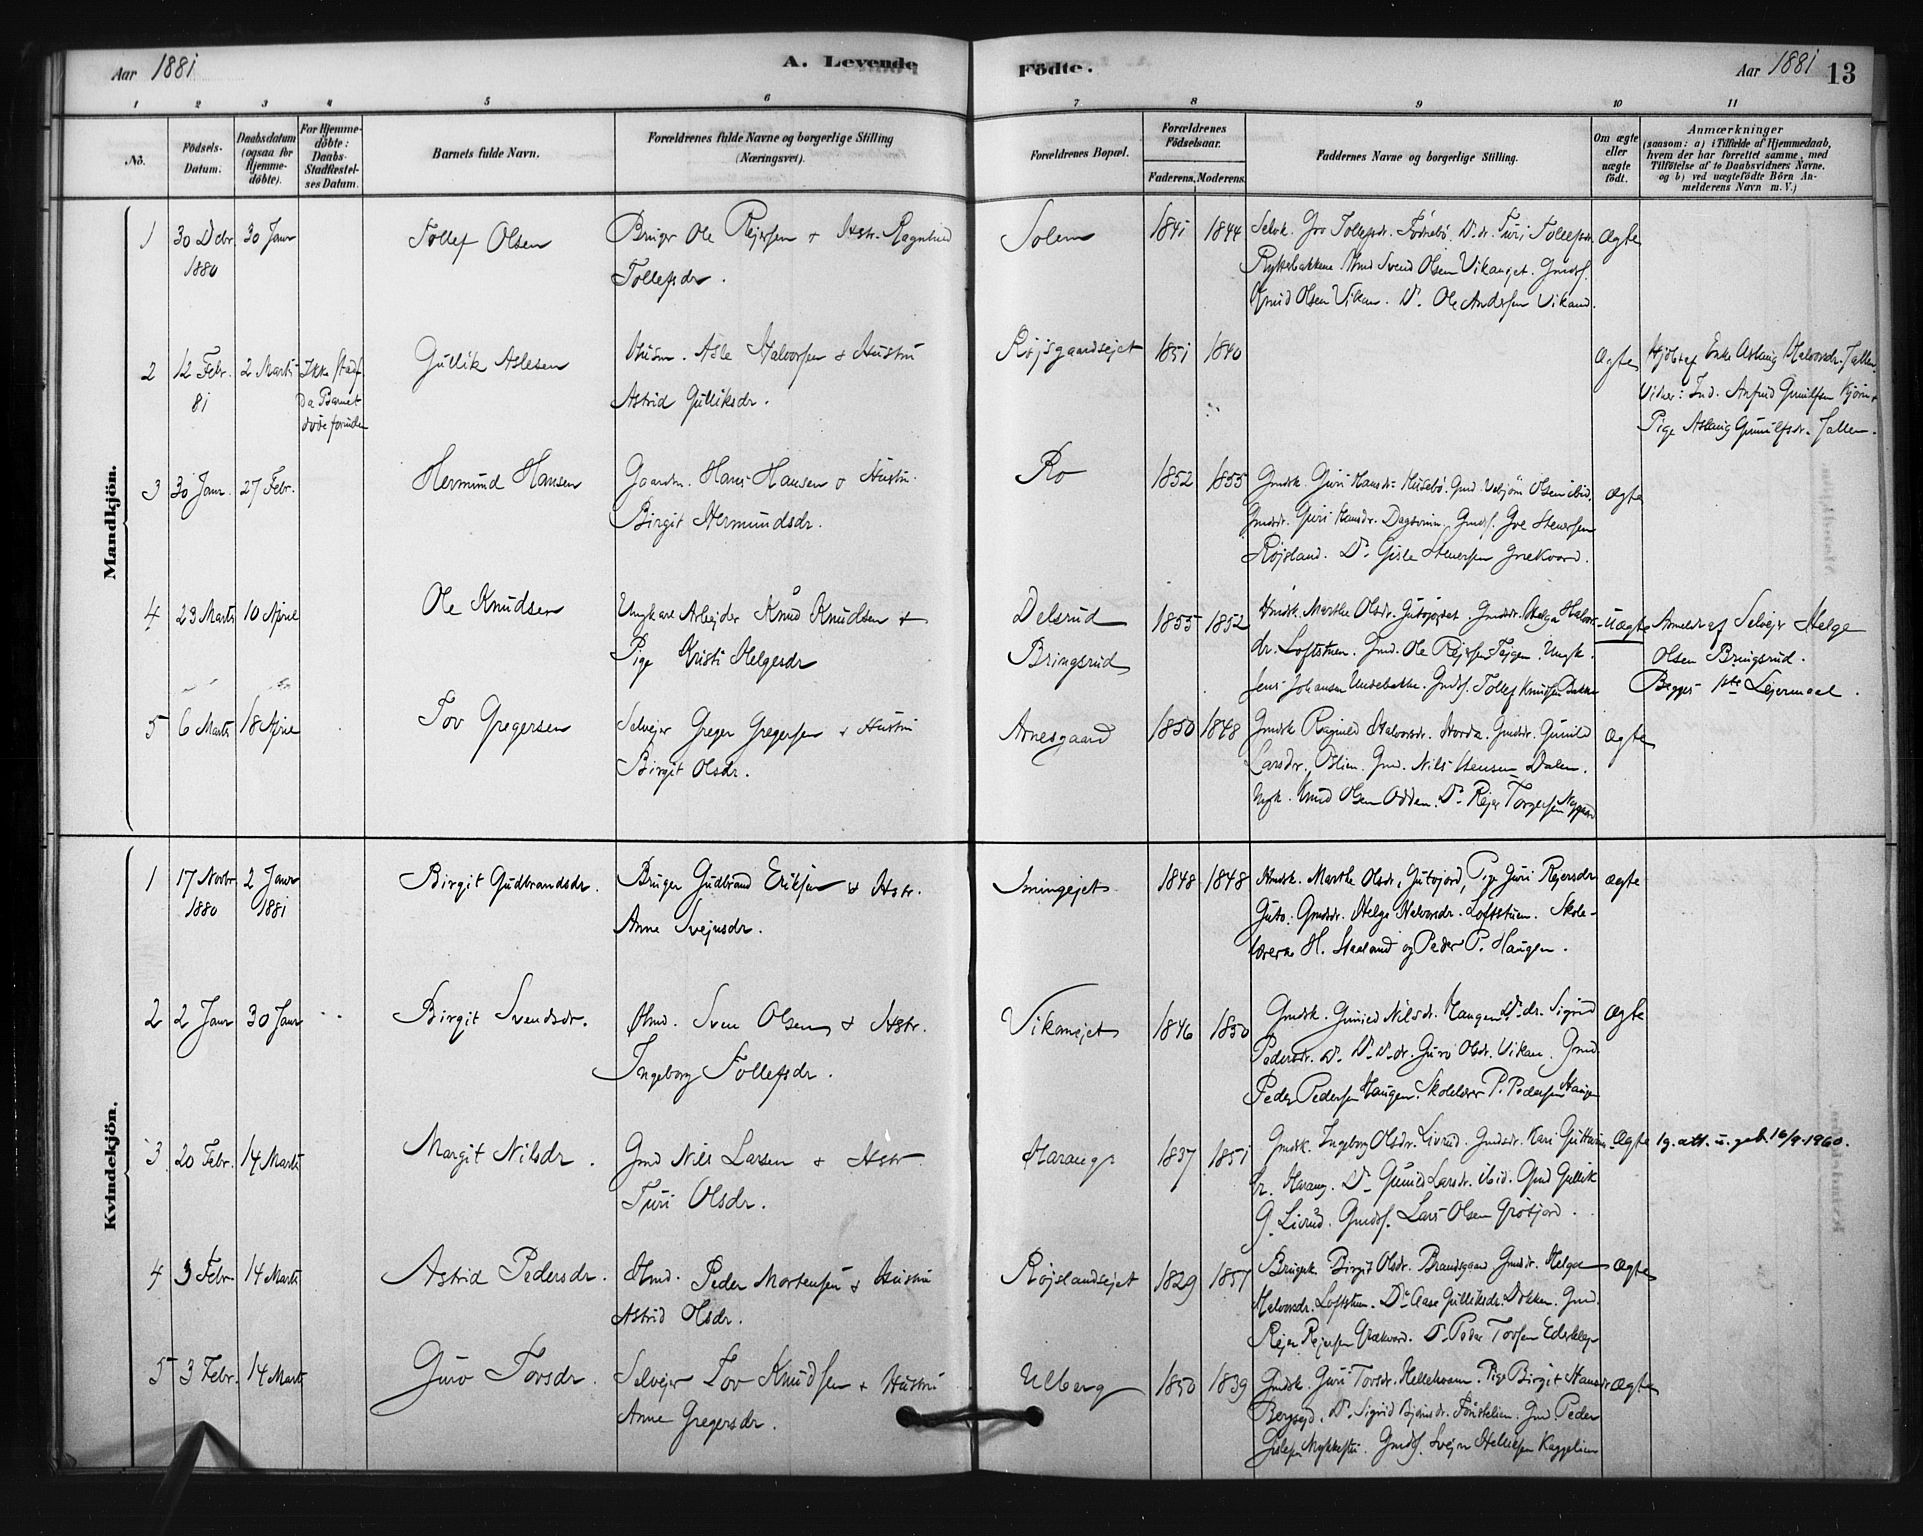 Aar 1881
A. Levende
Födte.
Aar 1881
13
1 2 3 4 5 6 7 8 9 10 11
No.
Födsels-
Datum.
Daabsdatum
(ogsaa for
Hjemme-
döbte).
For Hjemme-
döbte:
Daabs-
Stadfæstel-
ses Datum.
Barnets fulde Navn.
Forældrenes fulde Navne og borgerlige Stilling
(Næringsvei).
Forældrenes Bopæl.
Forældrenes
Födselsaar.
Faderens. Moderens.
Faddernes Navne og borgerlige Stilling.
Om ægte
eller
uægte
födt.
Anmærkninger
(saasom: a) i Tilfælde af Hjemmedaab,
hvem der har forrettet samme, med
Tilföielse af to Daabsvidners Navne.
og b) ved uægtefödte Börn An-
melderens Navn m. V.)
Mandkjön.
1 30 Dcbr 30 Janr Tollef Olsen Bruger Ole Rejersen & Hstr. Ragnhild Solem 1841 1844 Selvk. Gro Tollefsdr. D. dr. Turi Tollefsdr. Ægte
1880
Tollefsdr. Svend Olsen Vikanejet. Gmds.
Knud Olsen Vikan. Do. Ole Andersen Vikand.
2 12 Febr. 2 Marts Ikke stadf. Gullik Aslesen Husm. Asle Halvorsen & Hustru Røjsgaardsejet 1851 1840 Ægte Hjdbt af Enke Aslaug Halvorsdr. Jallen
81 Da Barnet Astrid Gulliksdr. Vidner: Ind. Anfind Gunulfsen
døde forinden Pige Aslaug Gunulfsdr. Jallen.
3 30 Janr. 27 Febr. Hermund Hansen Gaardm. Hans Hansen & Hustru Ro 1852 1855 Gmdsk. Guri Hansdr. Husebø. Gmd. Vebjørn Olsen ibid. Ægte
Birgit Hermundsdr. Gmdsdr. Guri Hansdr. Gmds.
Røjsland. Do. Gisle
4 23 Marts 10 April Ole Knudsen Ungkarl Arbejder Knud Knudsen & Delsrud 1855 1852 Hmdsk. Marthe Olsdr. Gmdsdr. Helga Halvors- Uægte Anmeldt af Selvejr Helge
Pige Kristi Helgesdr Bringsrud dr. Loftstuen. Gmd. Ole Rejersen Ungk. Olsen Bringsrud.
Jens Johansen Gmds. Tollef Knudsen Bakken Begges 1ste Lejermaal.
5 6 Marts 18 April Tov Gregersen Selvejer Greger Gregersen & Hustru Arnesgaard 1850 1848 Gmdsk. Ragnild Halvorsdr. Gmdsdr. Gunild Ægte
Birgit Olsdr. Larsdr. Gmd. Nils Dalen.
Ungk. Knud Olsen Odden. Do. Rejer Torgersen Nygaard
Kvindekjön.
1 17 Novbr 2 Janr Birgit Gudbrandsdr. Bruger Gudbrand Eriksen & Hstr. Imingejet 1848 1848 Hmdsk. Marthe Olsdr. Gutojord, Pige Guri Rejersdr Ægte
1880 1881 Anne Svejnsdr. Guto. Gmdsdr. Helga Halvorsdr. Loftstuen. Skole-
lærerne H. Haaland og Peder P. Haugen.
2 2 Janr 30 Janr Birgit Svendsdr. Hmd. Sven Olsen & Hstr. Vikanejet 1846 1850 Gmdsk. Gunild Nilsdr. Haugen. Do. dr. Sigrid Ægte
Ingeborg Tollefsdr. Pedersdr. Do. Do. dr. Guro Olsdr. Vikan. Gmd.
Peder Pedersen Haugen. Skolelærer P. Pedersen Haugen
3 20 Febr. 14 Marts Margit Nilsdr. Gmd Nils Larsen & Hstr Harang 1837 1851 Gmdsk. Ingeborg Olsdr. Livrud. Gmdsdr. Kari Guttorms- Ægte 1g. att. u. geb. 16/9-1960.
Turi Olsdr. dr. Harang. Do. Gunild Larsdr. ibid. Gmd Gullik
G. Livrud. Gmds. Lars Olsen Grøtjord.
4 3 Febr 14 Marts Astrid Pedersdr. Hmd. Peder Mortensen & Hustru Røjslandsejet 1829 1857 Brugsk. Birgit Olsdr. Brandsgaard Gmdsdr. Helga Ægte
Astrid Olsdr. Halvorsdr. Loftstuen. Do. Aase Gulliksdr. Dokken. Gmd.
Rejer Rejersen Do. Peder Tovsen
5 3 Febr. 14 Marts Guro Tovsdr. Selvejer Tov Knudsen & Hustru Ulberg 1850 1839 Gmdsk. Guri Tovsdr. Pige Birgit Hansdr Ægte
Anne Gregersdr. Do. Sigrid Gmd. Peder
Gislesen Gmds. Svejn